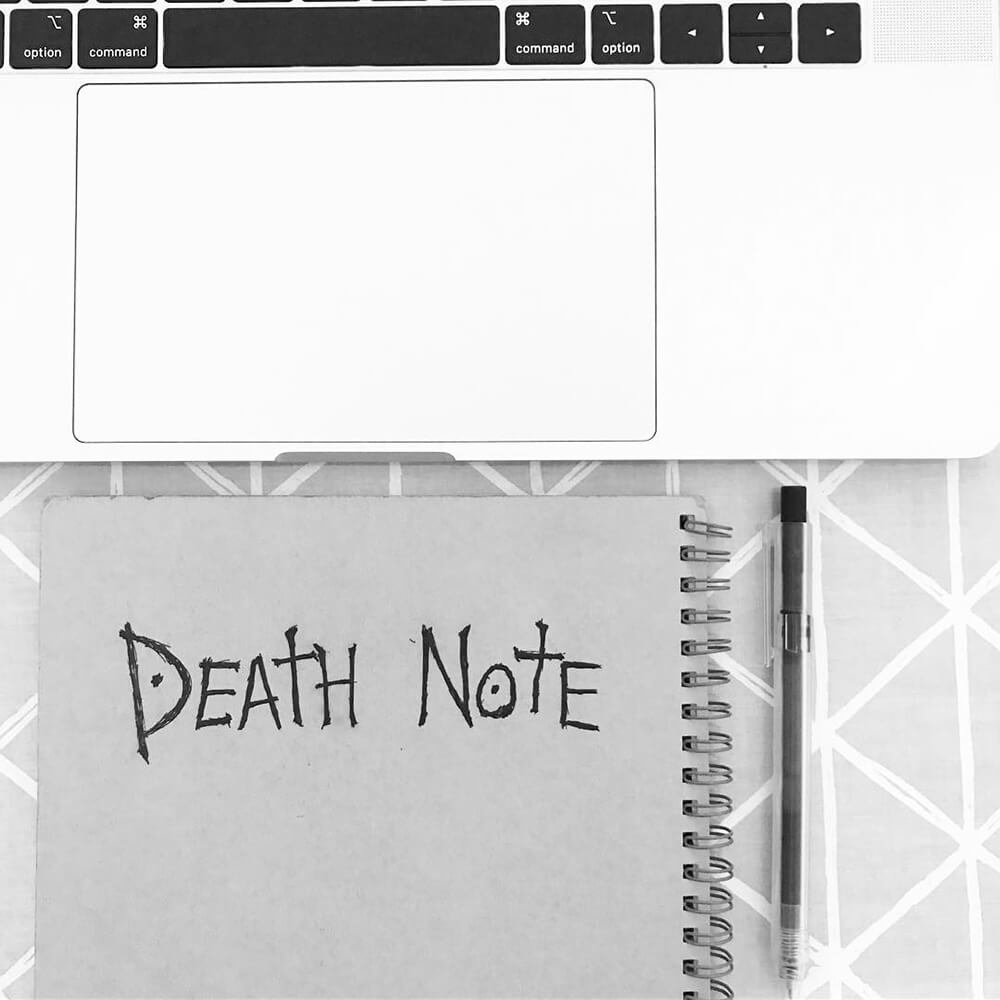 ⌥ ⌘ ⌘ ⌥
option command command option
◀ ▲ ▼ ▶
DEATH NOTE